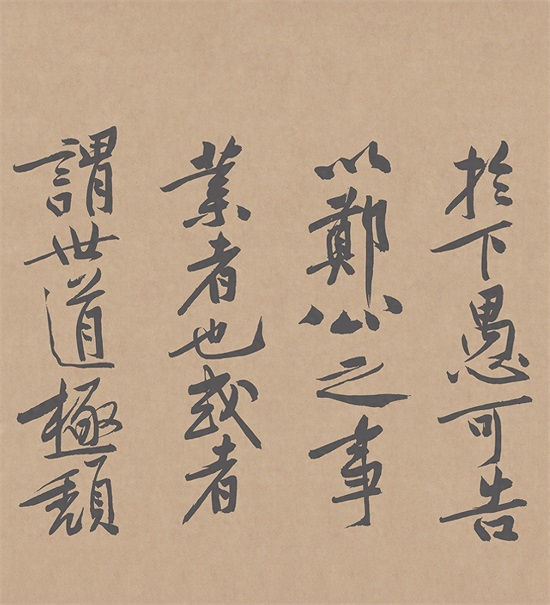 於下愚可告
以鄭公之事
業者也或者
謂世道極頹